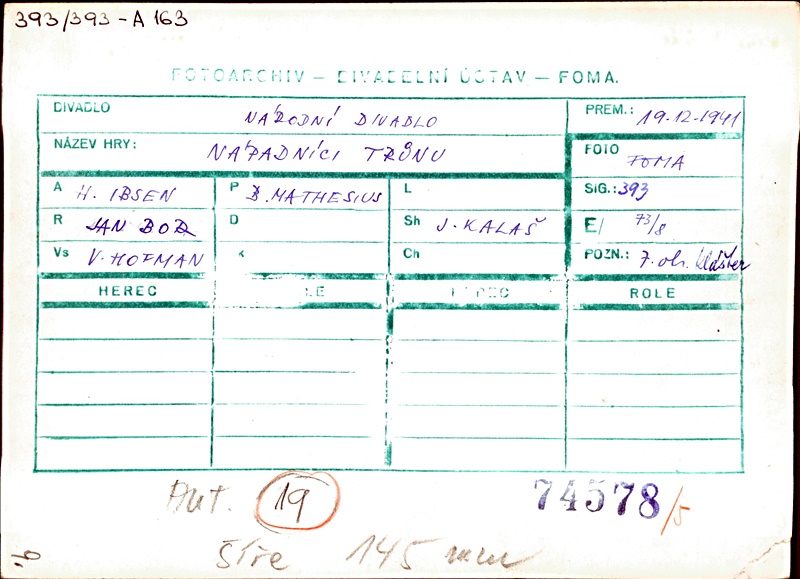 393/393 - A 163
FOTOARCHIV — DIVADELNÍ ÚSTAV — FOMA.
DIVADLO NÁRODNÍ DIVADLO PREM.: 19.12.1941
NÁZEV HRY: NÁPADNÍCI TRŮNU FOTO FOMA
A H. IBSEN P B. MATHESIUS L SIG.: 393
R JAN BOR D Sh J. KALAŠ E/ 73/8
Vs V. HOFMAN K Ch POZN.: 7. obr. klášter
HEREC LE REC ROLE
Aut. 19 74578/5
šíře 145 mm